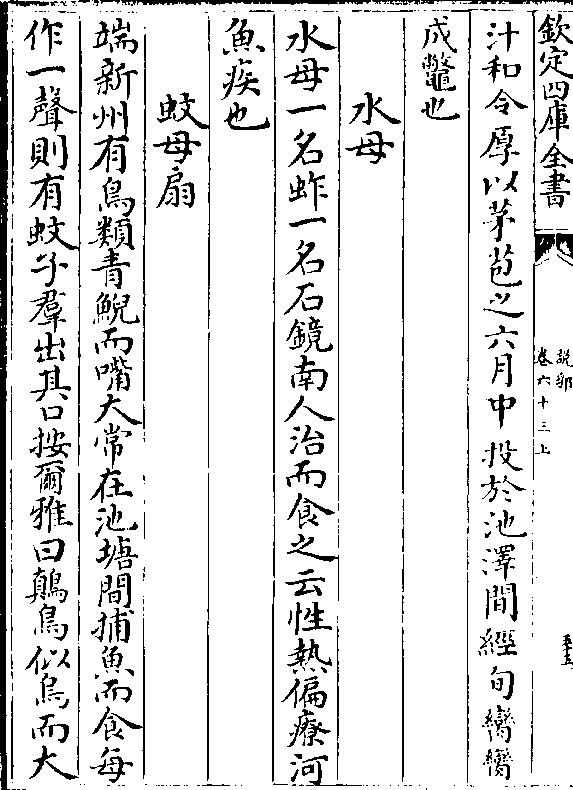 欽定四庫全書
說郛
卷六十三上
汁和令厚以茅苞之六月中投於池澤間經旬臠臠
成鼈也
水母
水母一名蚱一名石鏡南人治而食之云性熱偏療河
魚疾也
蚊母扇
端新州有鳥類青鶂而嘴大常在池塘間捕魚而食每
作一聲則有蚊子羣出其口按爾雅曰鷏鳥似烏而大